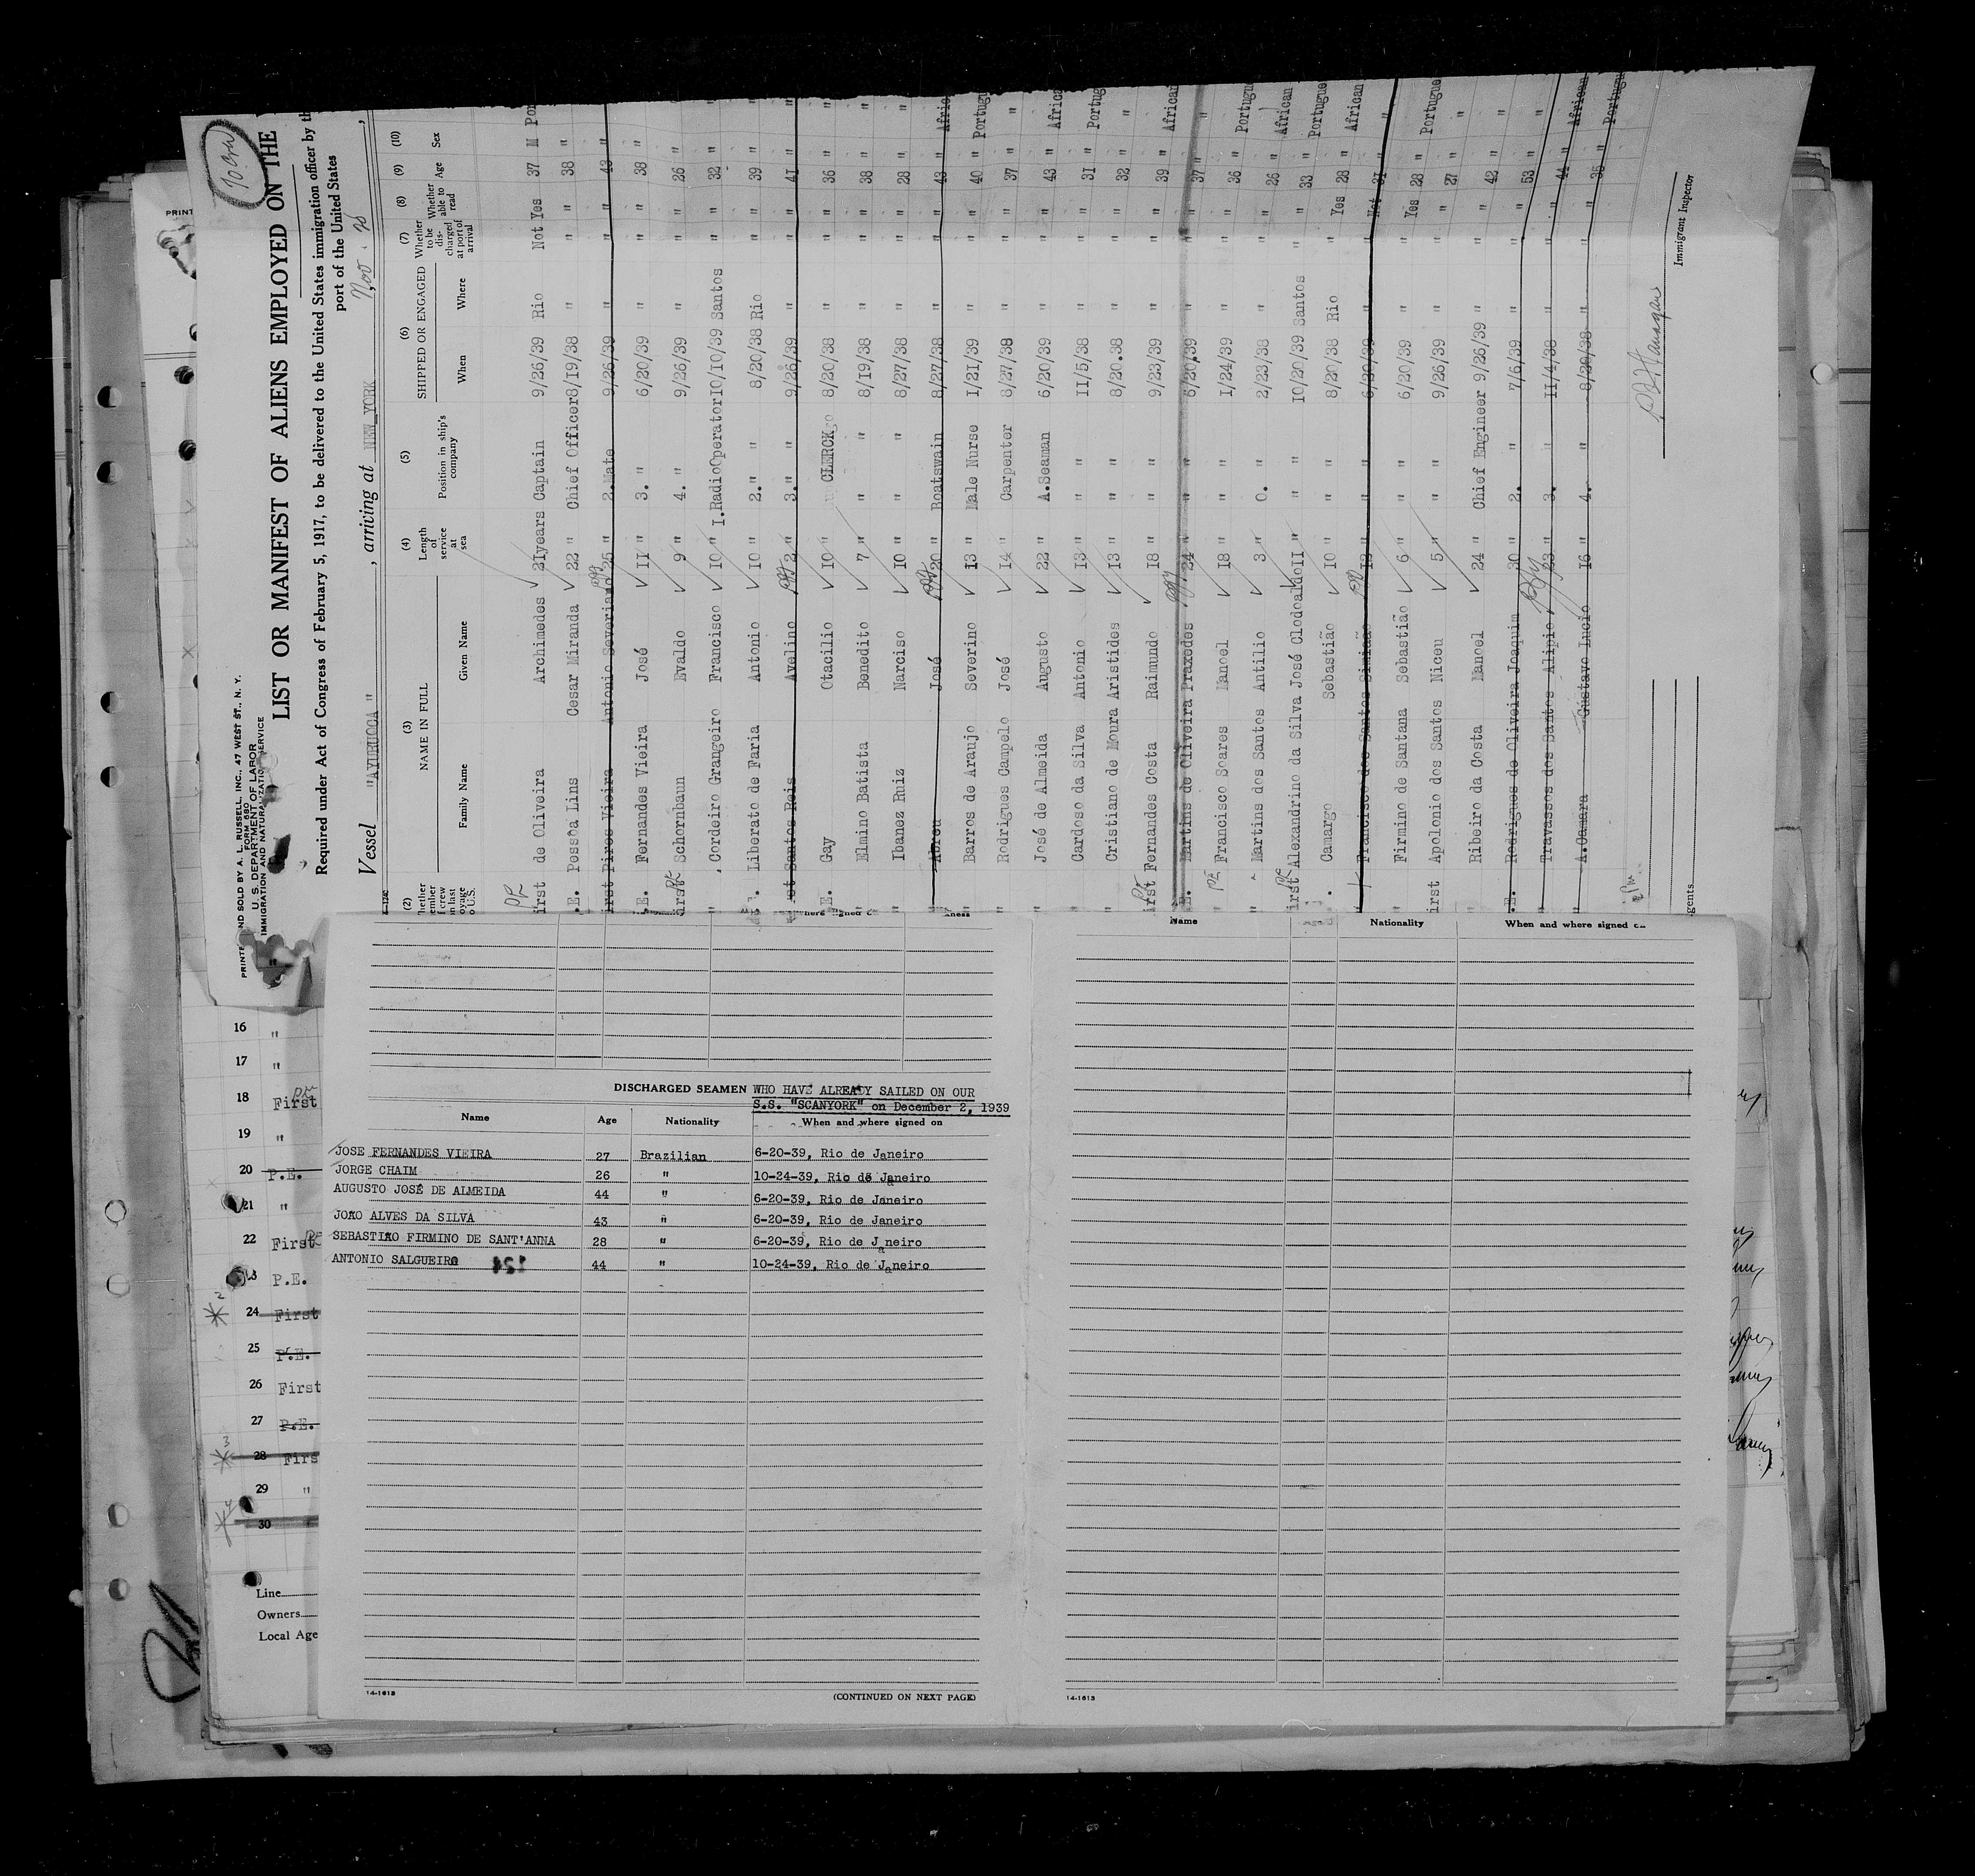 PRINTED AND SOLD BY A. L. RUSSELL, INC., 47 WEST ST., N. Y.
FORM 680
U. S. DEPARTMENT OF LABOR
IMMIGRATION AND NATURALIZATION SERVICE
LIST OR MANIFEST OF ALIENS EMPLOYED ON THE
Required under Act of Congress of February 5, 1917, to be delivered to the United States immigration officer by th
port of the United States
Vessel "AYURUOCA" , arriving at NEW YORK , Nov.
(2) (3) (4) (5) (6) (7) (8) (9) (10)
NAME IN FULL Length of service at sea Position in ship's company SHIPPED OR ENGAGED Whether to be discharged at port of arrival Whether able to read Age Sex
Family Name Given Name When Where
irst de Oliveira Archimedes 21years Captain 9/26/39 Rio Not Yes 37 M Por
.E. Pessôa Lins Cesar Miranda 22 " Chief Officer 8/19/38 " " " 38 "
irst Pires Vieira Antonio Severiano 25 " 2.Mate 9/26/39 " " " 43 "
.E. Fernandes Vieira José 11 " 3. " 6/20/39 " " " 38 "
irst Schornbaun Evaldo 9 " 4. " 9/26/39 " " " 26 "
" Cordeiro Grangeiro Francisco 10 " I.RadioOperator 10/10/39 Santos " " 32 "
. Liberato de Faria Antonio 10 " 2. " " 8/20/38 Rio " " 39 "
st Santos Reis Avelino 2 " 3. " " 9/26/39 " " " 41 "
E. Gay Otacilio 10 " CLERCK 8/20/38 " " " 36 "
" Elmino Batista Benedito 7 " " " 8/19/38 " " " 38 "
" Ibanez Ruiz Narciso 10 " " " 8/27/38 " " " 28 "
" Abreu José 20 " Boatswain 8/27/38 " " " 43 " Africa
" Barros de Araujo Severino 13 " Male Nurse 1/21/39 " " " 40 " Portugu
" Rodrigues Campelo José 14 " Carpenter 8/27/38 " " " 37 "
" José de Almeida Augusto 22 " A.Seaman 6/20/39 " " " 43 " Africa
" Cardoso da Silva Antonio 13 " " 11/5/38 " " " 31 " Portug
" Cristiano de Moura Aristides 13 " " 8/20.38 " " " 32 " "
irst Fernandes Costa Raimundo 18 " " 9/23/39 " " " 39 " African
.E. Martins de Oliveira Praxedes 24 " " 6/20/39 " " " 37 " "
" Francisco Soares Manoel 18 " " 1/24/39 " " " 36 " Portugue
" Martins dos Santos Antilio 3 " O. " 2/23/38 " " " 26 " African
irst Alexandrino da Silva José Clodoaldo 11 " " 10/20/39 Santos " " 33 " Portugue
. Camargo Sebastião 10 " " 8/20/38 Rio Yes 28 " African
Francisco dos Santos Simião 13 " " 6/30/39 " Not 31 " "
" Firmino de Santana Sebastião 6 " " 6/20/39 " " Yes 28 " Portugue
irst Apolonio dos Santos Niceu 5 " " 9/26/39 " " " 27 " "
" Ribeiro da Costa Manoel 24 " Chief Engineer 9/26/39 " " " 42 " "
.E. Rodrigues de Oliveira Joaquim 30 " 2. " 7/6/39 " " " 53 " "
" Travassos dos Santos Alipio 23 " 3. " 11/4/38 " " " 44 " African
" A.Camara Gustavo Lucio 16 " 4. " 8/20/38 " " " 36 " Portugue
Immigrant Inspector
gents
Name Age Nationality When and where signed on
DISCHARGED SEAMEN WHO HAVE ALREADY SAILED ON OUR
S.S. "SCANYORK" on December 2, 1939
Name Age Nationality When and where signed on
JOSE FERNANDES VIEIRA 27 Brazilian 6-20-39, Rio de Janeiro
JORGE CHAIM 26 " 10-24-39, Rio de Janeiro
AUGUSTO JOSÉ DE ALMEIDA 44 " 6-20-39, Rio de Janeiro
JOAO ALVES DA SILVA 43 " 6-20-39, Rio de Janeiro
SEBASTIAO FIRMINO DE SANT'ANNA 28 " 6-20-39, Rio de Janeiro
ANTONIO SALGUEIRO 44 " 10-24-39, Rio de Janeiro
14-1613 (CONTINUED ON NEXT PAGE)
14-1613
16 "
17 "
18 First
19 "
20 P.E.
21 "
22 First
23 P.E.
24 First
25 P.E.
26 First
27 P.E.
28 Firs
29 "
30 "
Line
Owners
Local Age